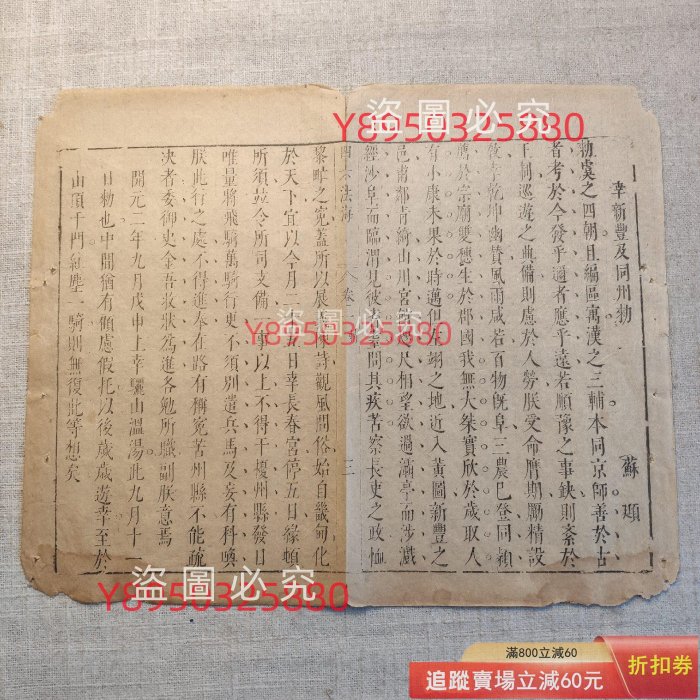 幸新豐及同州勅　蘇頲
勅虞之四朝且編區寓漢之三輔本同京師善於古
者考於今發乎邇者應乎遠若順豫之事缺則紊於
王制巡遊之典備則慮於人勞朕受命膺期勵精設
教幸乾坤幽贊風雨咸若百物旣阜三農已登同穎
薦於宗廟雙穗生於郡國我無大 實欣於歲取人
有小康未果於時邁但左翊之地近入黃圖新豐之
邑甫鄰青綺山川宮館咫尺相望欲過灞亭而涉滻
經沙阜而臨渭見彼耆 問其疾苦察長吏之政恤
四六法海 卷 二
黎甿之寃蓋所以展義陳詩觀風問俗始自畿甸化
於天下宜以今月二十五日幸長春宮停五日緣頓
所須並令所司支備一事以上不得干擾州縣發日
唯量將飛騎萬騎行更不須別遣兵馬及妄有科喚
朕此行之處不得進奉在路有稱寃苦州縣不能疏
決者委御史金吾收狀爲進各勉所職副朕意焉
開元二年九月戊申上幸驪山溫湯此九月十一
日勅也中間猶有顧慮假托以後歲歲遊幸至於
山頂千門紅塵一騎則無復此等想矣
盜圖必究
Y8950325880
盜圖必究
Y8950325880
盜圖必究
Y8950325880
滿800立減60
追蹤賣場立減60元
折扣券